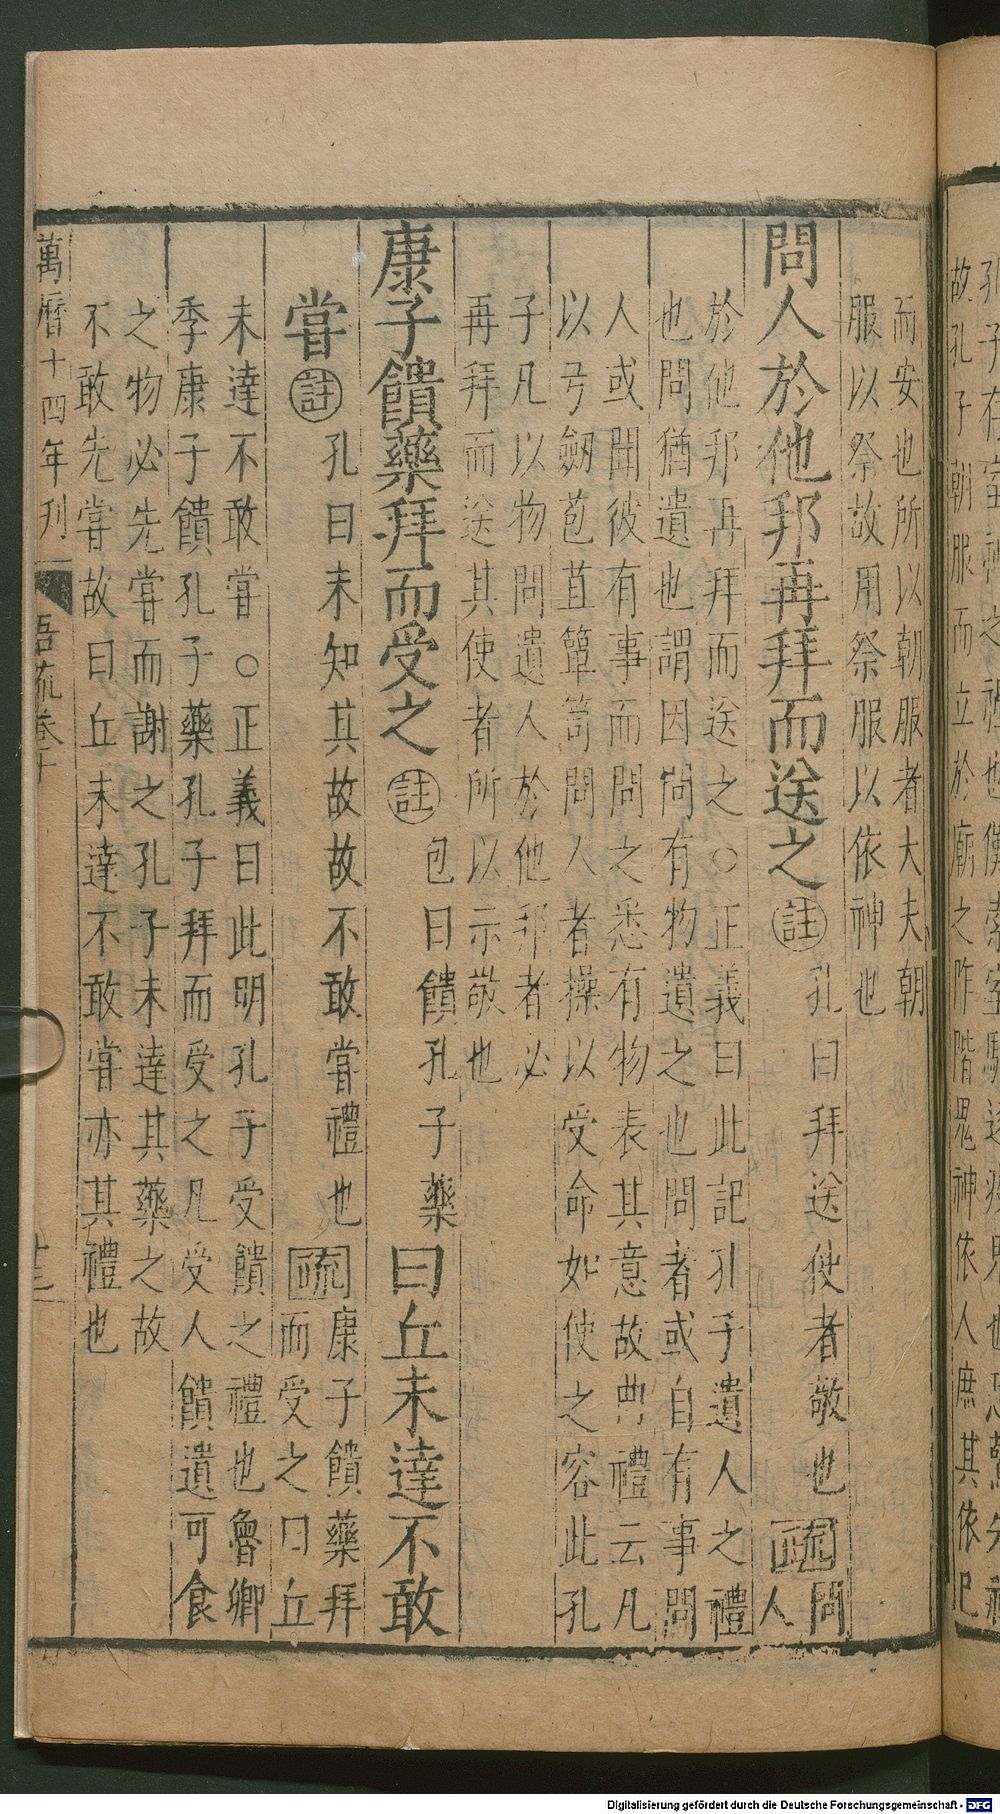 孔子在室神之
故孔子朝服而立於廟之阼階鬼神依人庶其依已
而安也所以朝服者大夫朝
服以祭故用祭服以依神也
問人於他邦再拜而送之註孔曰拜送使者敬也疏問人
於他邦再拜而送之○正義曰此記孔子遺人之禮
也問猶遺也謂因問有物遺之也問者或自有事問
人或聞彼有事而問之悉有物表其意故典禮云凡
以弓劒苞苴簞笥問人者操以受命如使之容此孔
子凡以物問遺人於他邦者必
再拜而送其使者所以示敬也
康子饋藥拜而受之註包曰饋孔子藥曰丘未達不敢
嘗註孔曰未知其故故不敢嘗禮也疏康子饋藥拜而受之曰丘
未達不敢嘗○正義曰此明孔子受饋之禮也魯卿
季康子饋孔子藥孔子拜而受之凡受人饋遺可食
之物必先嘗而謝之孔子未達其藥之故
不敢先嘗故曰丘未達不敢嘗亦其禮也
萬曆十四年刊 語疏卷十
Digitalisierung gefördert durch die Deutsche Forschungsgemeinschaft - DFG